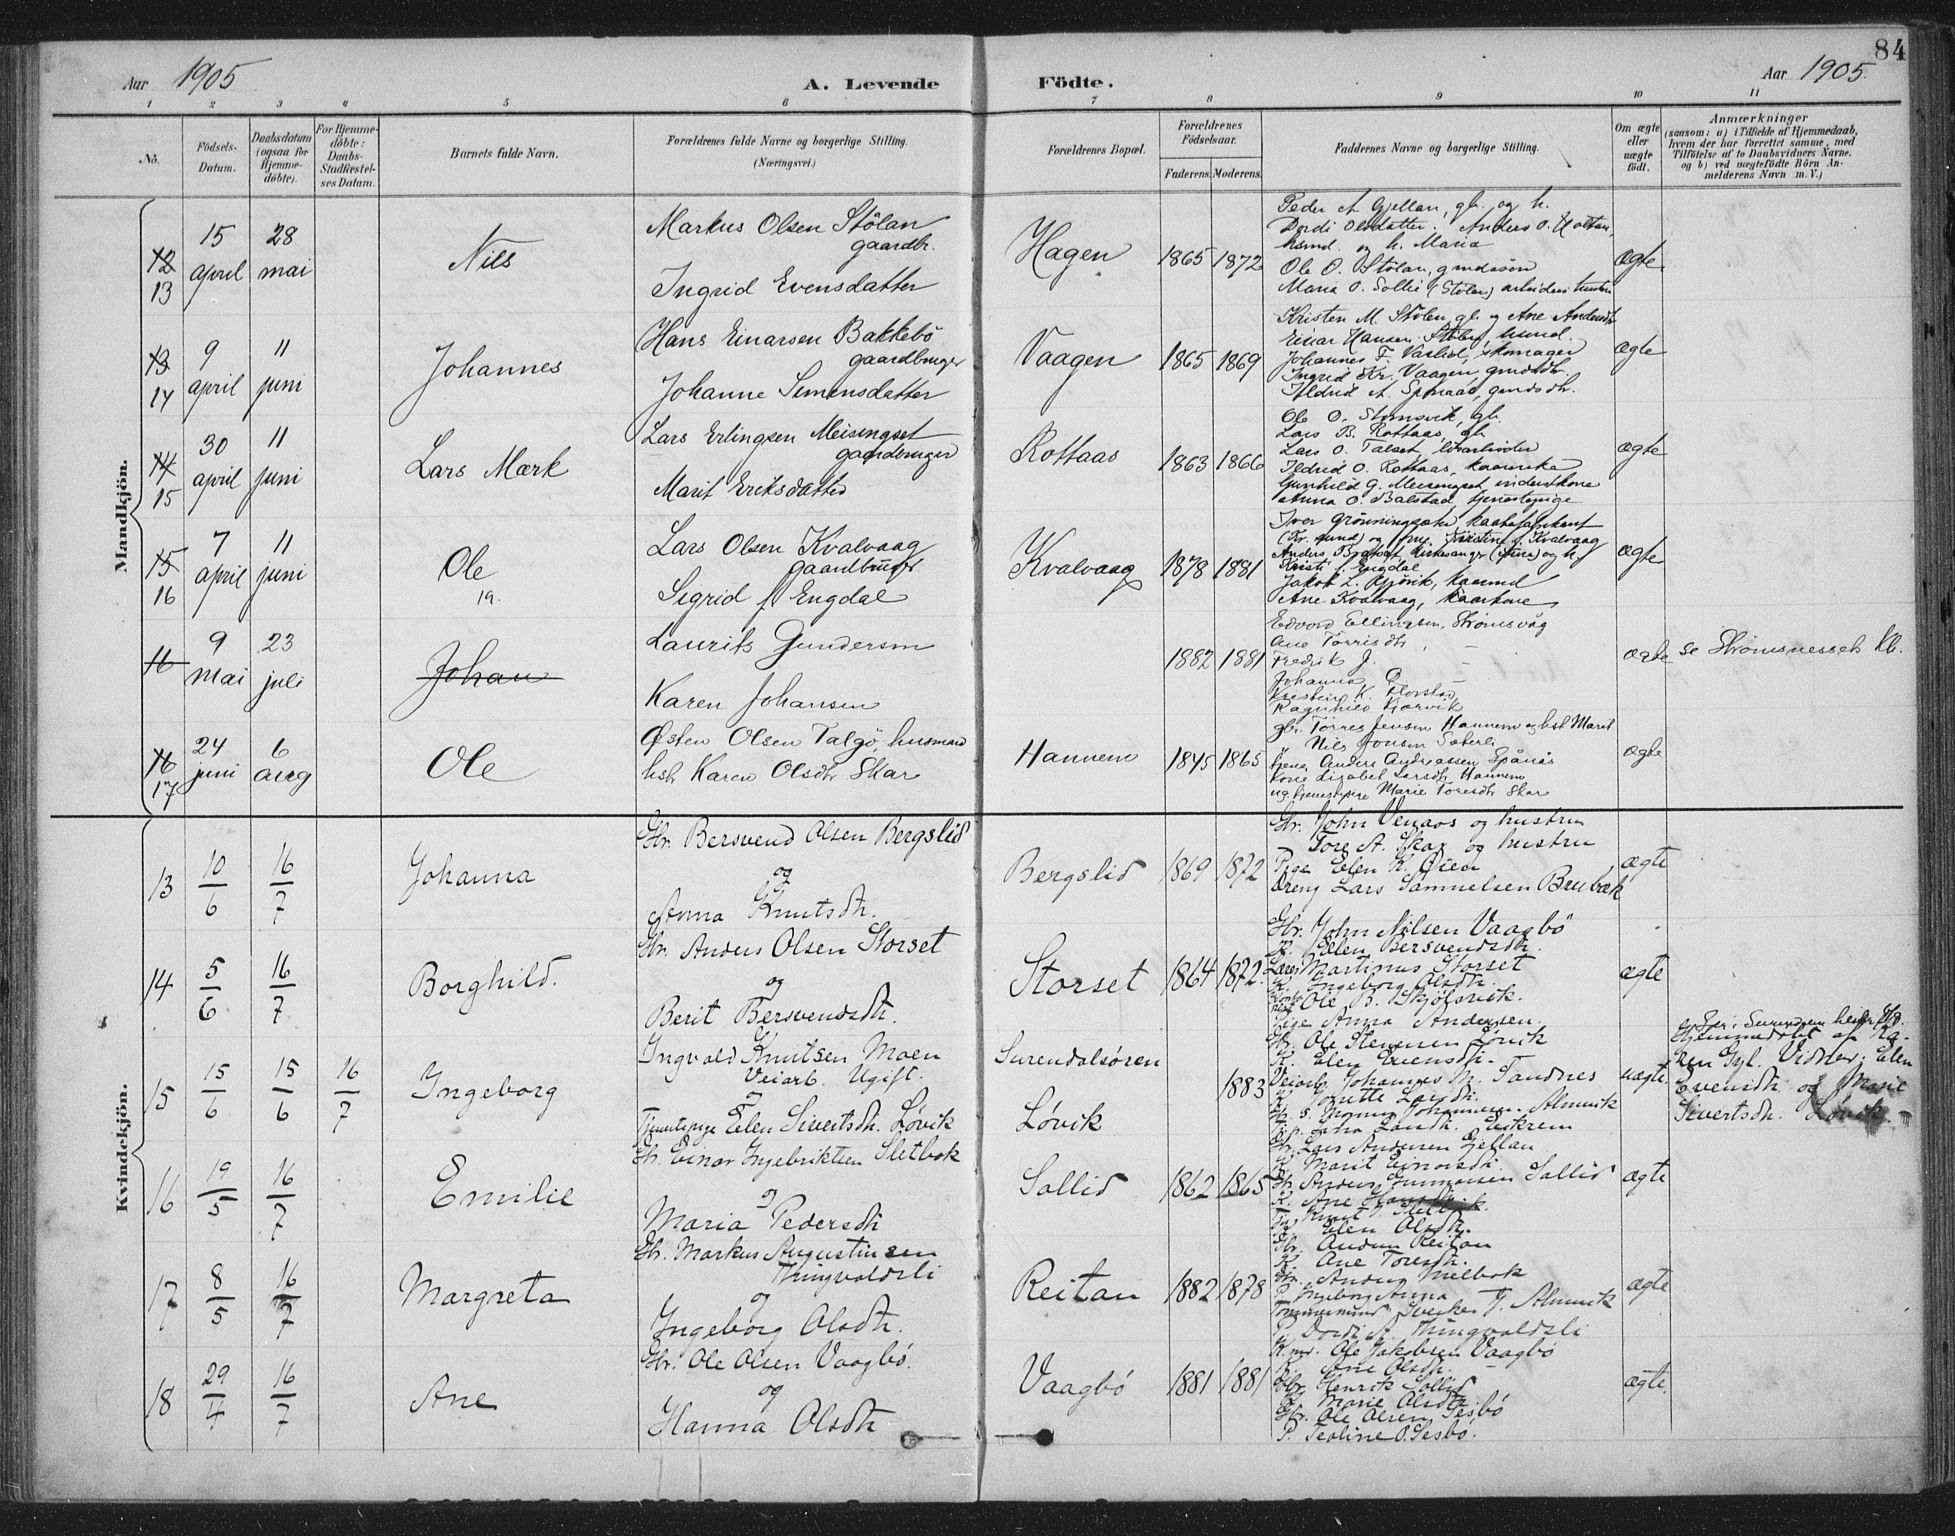 84
Aar 1905
A. Levende Födte.
Aar 1905.
1 2 3 4 5 6 7 8 9 10 11
No.
Födsels-Datum.
Daabsdatum (ogsaa for Hjemme-döbte).
For Hjemme-döbte: Daabs-Stadfæstel-ses Datum.
Barnets fulde Navn.
Forældrenes fulde Navne og borgerlige Stilling. (Næringsvei.)
Forældrenes Bopæl.
Forældrenes Födselsaar.
Faderens. Moderens.
Faddernes Navne og borgerlige Stilling.
Om ægte eller uægte födt.
Anmærkninger
(saasom: a) i Tilfælde af Hjemmedaab, hvem der har forrettet samme, med Tilföielse af to Daabsvidners Navne, og b) ved uægtefödte Börn An-melderens Navn m. V.)
Mandkjön.
12 13
15 april
28 mai
Nils
Markus Olsen Stölan
gaardbr.
Ingrid Evensdatter
Hagen
1865 1872
Peder A. Gjellan, gb. og h.
Dordi Olsdatter. Anders O. Holtan,
husmd. og h. Maria
Ole O. Stölan, gmdssön
Maria O. Sollie (Stölan) arbeiders hustru
ægte
13 14
9 april
11 juni
Johannes
Hans Einarsen Bakkebö
gaardbruger
Johanne Simensdatter
Vaagen
1865 1869
Kristen M. Stölen gb. og Ane Andersdtr
Einar Hansen husmd.
Johannes F. skomager
Ingrid Kr. Vaagen, gmdsdtr.
Ildrid A. gmdsdtr.
ægte
14 15
30 april
11 juni
Lars Mærk
Lars Erlingsen Meisingset
gaardbruger
Marit Eriksdatter
Rottaas
1863 1866
Ole O. Stomsvik, gb.
Lars B. Rottaas, gb.
Lars O. Talset,
Ildrid O. Rottaas,
Gunhild G. Meisingset
Anna O. Balstad tjenestepige
ægte
15 16
7 april
11 juni
Ole
19.
Lars Olsen Kvalvaag
gaardbruger
Sigrid f. Engdal
Kvalvaag
1878 1881
Iver Grönningsæter,
(Kr.sund) og fru Kristine f. Kvalvaag
Anders kirkesanger og h.
Kristi f. Engdal
Jakob L. Gjörvik, kaarmd
Ane Kvalvaag, kaarkone
ægte
16
9 mai
23 juli
Johan
Laurits Gundersen
Karen Johansen
1882 1881
Edvard Ellingsen, Strömsvåg
Ane Torrisdtr "
Fredrik J. "
Johanna O "
Kristein K.
Ragnhild
ægte
se Strömsnesset kb.
16 17
24 juni
6 aug
Ole
Østen Olsen Talgö, husmand
hst. Karen Olsdtr Skar
Hannem
1845 1865
gbr. Torres Jensen Hannem og hst Marit
Nils Jonsen Sæterli
tjener Anders Andreassen Spånås
kone Lisabet Larsdtr Hannem
og tjenestepige Marie Toresdtr Skar
ægte
Kvindekjön.
13
10/6
16/7
Johanna
Gbr. Bersvend Olsen Bergslid
og
Anna Knutsdtr.
Bergslid
1869 1872
Gbr. John Venaas og hustru
Tore A. Skar og hustru
Pige Elen K. Öien
Dreng Lars Samuelsen Brubæk
ægte
14
5/6
16/7
Borghild.
Gbr. Anders Olsen Storset
og
Berit Bersvendsdtr.
Storset
1864 1872
Gbr. John Nilsen Vaagbö
K. Elen Bersvendsdtr.
Martinus Storset
K. Ingeborg Olsdtr.
Ole B. Skjölsvik.
Pige Anna Andersen.
ægte
15
15/6
15/6
16/7
Ingeborg
Ingvald Knutsen Moen
Veiarb. Ugift.
og
Tjenestepige Elen Sivertsdtr. Løvik
Surendalsören
Løvik
1883
Gbr. Ole Løvik
K. Elen Evensdtr.
Veiarb. Johannes M. Sandnes
K. Josette Larsdtr.
Johannesen. Almvik
Eikrem
uægte.
Hjemmedöbt af
Vidner: Elen
Evensdtr og Marie
Sivertsdtr. Løvik.
16
19/5
16/7
Emilie
Gbr. Einar Ingebriktsen Sletbok
og
Maria Pedersdtr
Sollid
1862 1865
Gbr. Lars Andersen Gjellan
K. Marit Einarsdtr.
Gbr. Anders Gunnarsen Sollid
K. Ane
Knut
Elen Olsdtr.
ægte
17
8/5
16/7
Margreta
Gbr. Markus Augustinsen
Thingvoldsli
og
Ingeborg Olsdtr.
Reitan
1882 1878
Gbr. Anders Reitan
K. Ane Toresdtr.
Gbr. Anders
P. Anna
Tömmermand Sverker T. Almvik
P. Dordi A. Thingvoldsli
ægte
18
29/4
16/7
Ane
Gbr. Ole Olsen Vaagbö.
og
Hanna Olsdtr
Vaagbö
1881 1881
K.md. Ole Jakobsen Vaagbö
K. Ane Olsdtr.
Gbr. Henrik Sollid
K. Marie Olsdtr.
Gbr. Ole Olsen Sesbö
P. Teoline O. Sesbö.
ægte.